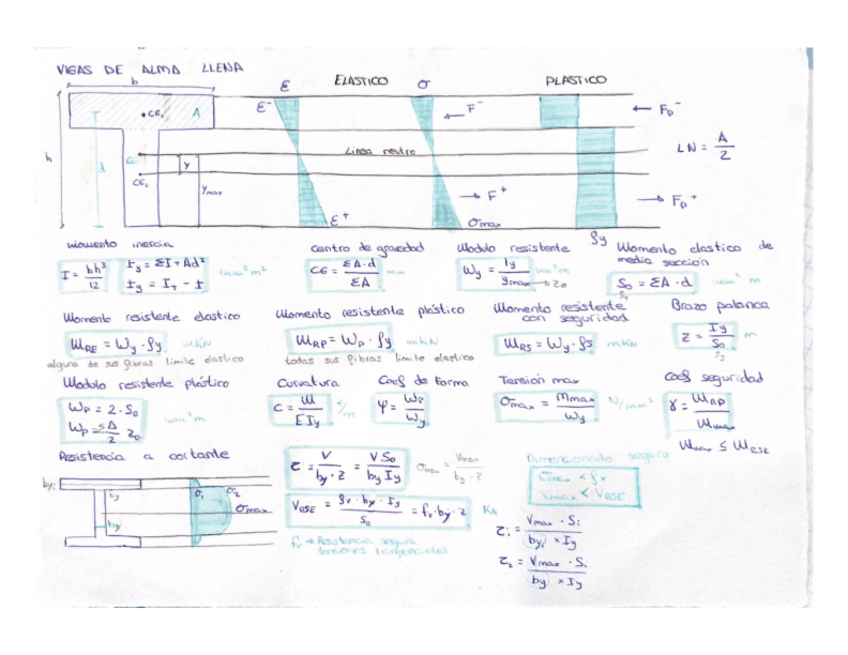 VIGAS DE ALMA LLENA
b
ε ELASTICO σ PLASTICO
ε⁻ F⁻ Fp⁻
CG₁ A
h d
Linea neutra
LN = A/2
G y
CG₂ ymax
F⁺ Fp⁺
ε⁺ σmax
fy
Momento inercia
I = bh³/12
Iy = ΣI + Ad²
Iy = IT - I
mm² m²
Centro de gravedad
CG = ΣA·d/ΣA mm
Modulo resistente
Wy = Iy/ymax → zo mm² m
Momento elastico de media sección
So = ΣA·d mm² m
Sy
Momento resistente elastico
MRE = Wy · fy mKN
alguna de sus fibras limite elastico
Momento resistente plástico
MRP = Wp · fy mKN
todas sus fibras limite elastico
Momento resistente con seguridad
MRS = Wy · fs mKN
Brazo palanca
z = Iy/So m
Sy
Modulo resistente plástico
Wp = 2 · So
Wp = ΣA/2 zo
mm² m
Curvatura
C = M/EIy /m
Coef de forma
φ = Wp/Wy
Tensión max
σmax = Mmax/Wy N/mm²
Coef seguridad
γ = MRP/Mmax
Mmax ≤ MRSE
Resistencia a cortante
by₁ ty by σ₁ σ₂ σmax
τ = V/by · z = V So/by Iy
σmax = Vmax/by · z
VRSE = fv · by · Iy/So = fv · by · z KN
fv → Resistencia segura tensiones tangenciales
Dimensionado seguro
σmax < fv
Vmax < VRSE
τ₁ = Vmax · Si/by₁ × Iy
τ₂ = Vmax · Si/by × Iy